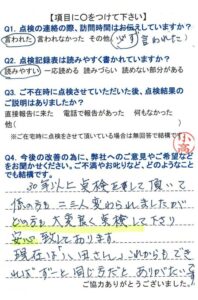 【項目に○をつけて下さい】
Q1. 点検の連絡の際、訪問時間はお伝えしていますか?
言われた 言われなかった その他(必ず言われた)
Q2. 点検記録表は読みやすく書かれていますか?
読みやすい 一応読める 読みづらい 読めない部分がある
Q3. ご不在時に点検させていただいた後、点検結果の
ご説明はありましたか?
直接訪問に来た 電話で報告があった 何もなかった
他( )
※ご在宅時に点検をさせて頂いている場合は無回答で結構です。
小高
Q4. 今後の改善の為に、弊社へのご意見やご希望などを
お聞かせください。ご不満やお叱りなど、どのようなことでも
結構です。
30年以上点検を重して頂いて
係の方も二三人変わられましたが
どの方も大変良く点検して下さり
安心致しております。
現在は「八田さん」これからもでき
ればずーと同じ方だとありがたい。
ご協力ありがとうございました。